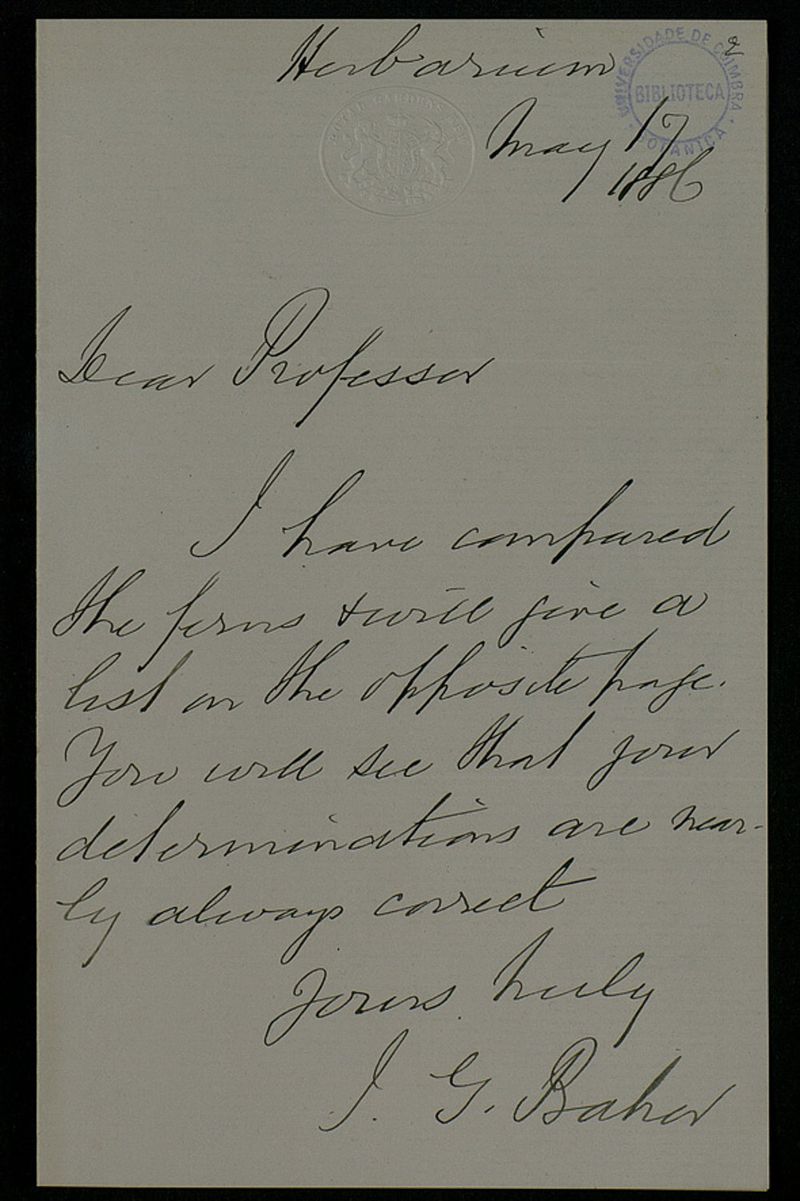 2
Herbarium
UNIVERSIDADE DE COIMBRA
BIBLIOTECA
BOTANICA
May 17
1886
Dear Professor
I have compared
the ferns & will give a
list on the opposite page.
You will see that your
determinations are near-
ly always correct
Yours truly
J. G. Baker